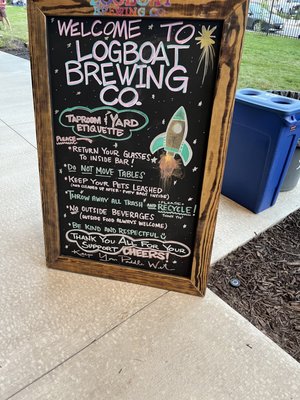 WELCOME TO
LOGBOAT
BREWING
CO.
TAPROOM & YARD
ETIQUETTE
PLEASE
*RETURN YOUR GLASSES
TO INSIDE BAR!
*DO NOT MOVE TABLES
*KEEP YOUR PETS LEASHED
(AND CLEANED UP AFTER - THEY
*THROW AWAY ALL TRASH AND RECYCLE!
PLEASE!
THANK YOU
*NO OUTSIDE BEVERAGES
(OUTSIDE FOOD ALWAYS WELCOME)
*BE KIND AND RESPECTFUL
THANK YOU ALL FOR YOUR
SUPPORT CHEERS!
Keep Your Paddle Wet